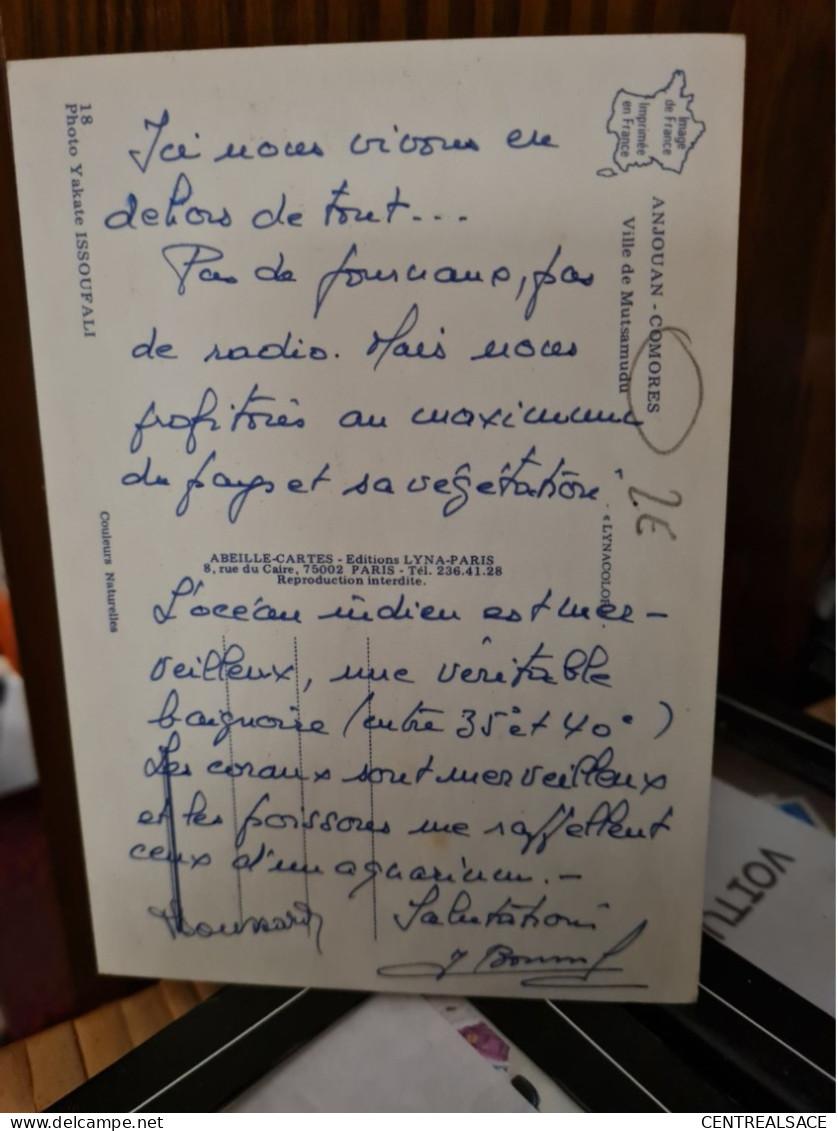 Image
de France
Imprimée
en France
ANJOUAN - COMORES
Ville de Mutsamudu
18
Photo Yakate ISSOUFALI
Ici nous vivons en
dehors de tout...
Pas de journaux, pas
de radio. Mais nous
profitons au maximum
du pays et sa végétation
2€
« LYNACOLOR
Couleurs Naturelles
ABEILLE-CARTES - Editions LYNA-PARIS
8, rue du Caire, 75002 PARIS - Tél. 236.41.28
Reproduction interdite.
L'océan indien est mer-
veilleux, une véritable
baignoire (entre 35° et 40°)
Les coraux sont merveilleux
et les poissons me rappellent
ceux d'un aquarium.-
Salutations
VOITU
CENTREALSACE